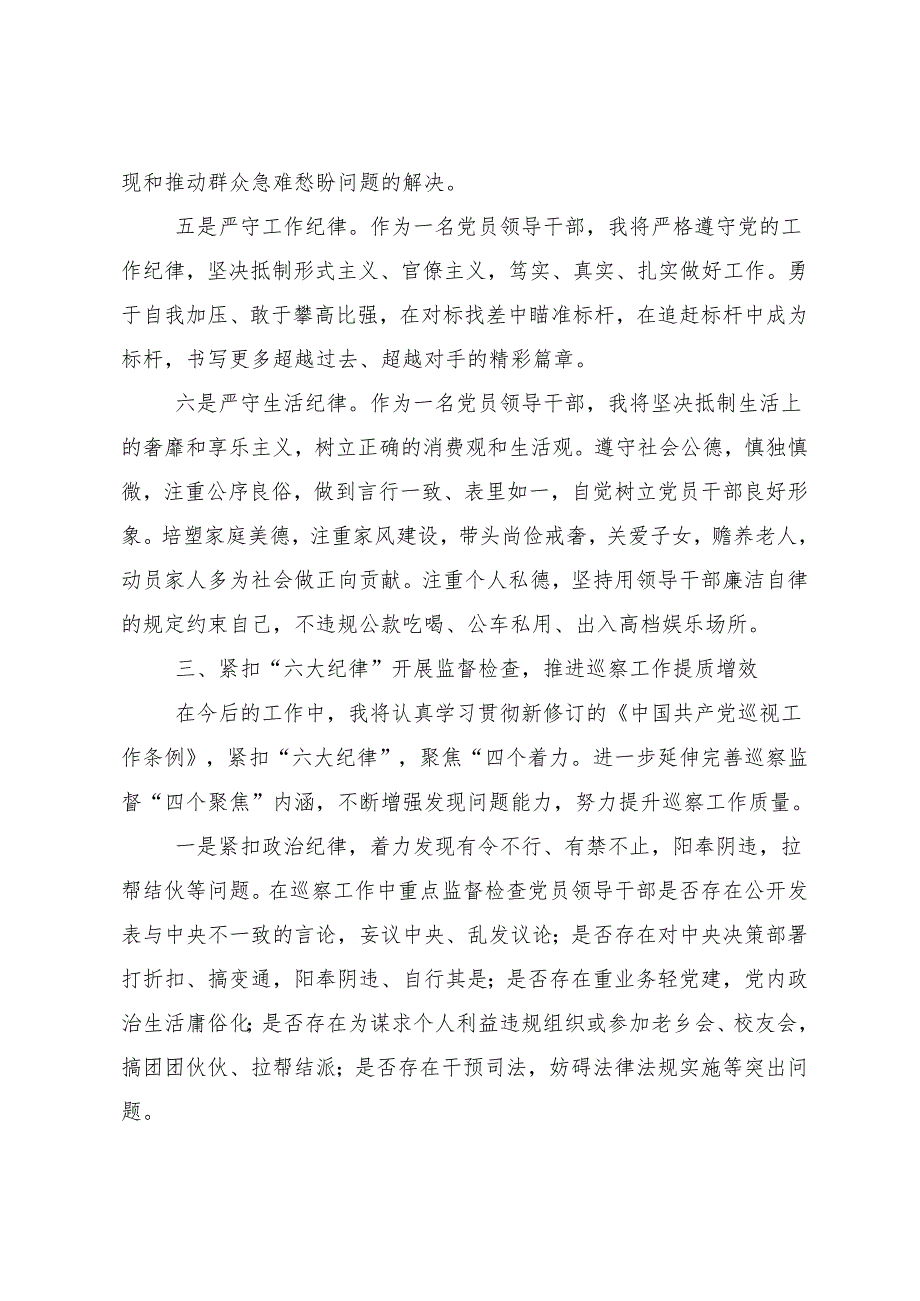 现和推动群众急难愁盼问题的解决。
五是严守工作纪律。作为一名党员领导干部，我将严格遵守党的工
作纪律，坚决抵制形式主义、官僚主义，笃实、真实、扎实做好工作。勇
于自我加压、敢于攀高比强，在对标找差中瞄准标杆，在追赶标杆中成为
标杆，书写更多超越过去、超越对手的精彩篇章。
六是严守生活纪律。作为一名党员领导干部，我将坚决抵制生活上
的奢靡和享乐主义，树立正确的消费观和生活观。遵守社会公德，慎独慎
微，注重公序良俗，做到言行一致、表里如一，自觉树立党员干部良好形
象。培塑家庭美德，注重家风建设，带头尚俭戒奢，关爱子女，赡养老人，
动员家人多为社会做正向贡献。注重个人私德，坚持用领导干部廉洁自律
的规定约束自己，不违规公款吃喝、公车私用、出入高档娱乐场所。
三、紧扣“六大纪律”开展监督检查，推进巡察工作提质增效
在今后的工作中，我将认真学习贯彻新修订的《中国共产党巡视工
作条例》，紧扣“六大纪律”，聚焦“四个着力。进一步延伸完善巡察监
督“四个聚焦”内涵，不断增强发现问题能力，努力提升巡察工作质量。
一是紧扣政治纪律，着力发现有令不行、有禁不止，阳奉阴违，拉
帮结伙等问题。在巡察工作中重点监督检查党员领导干部是否存在公开发
表与中央不一致的言论，妄议中央、乱发议论；是否存在对中央决策部署
打折扣、搞变通，阳奉阴违、自行其是；是否存在重业务轻党建，党内政
治生活庸俗化；是否存在为谋求个人利益违规组织或参加老乡会、校友会，
搞团团伙伙、拉帮结派；是否存在干预司法，妨碍法律法规实施等突出问
题。